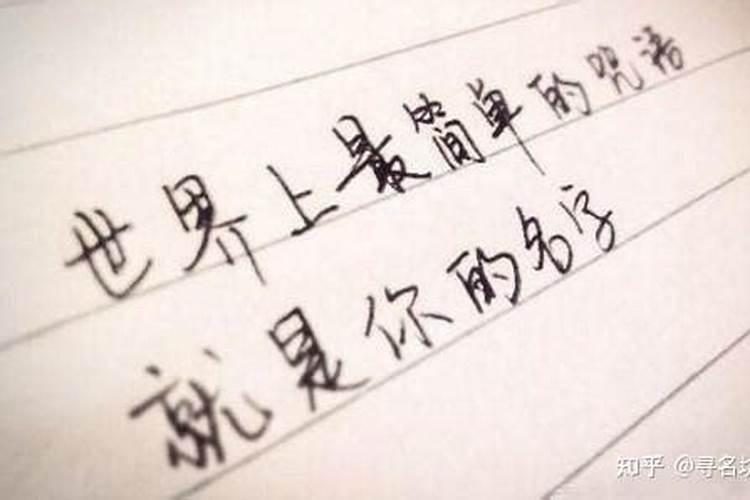 世界上最简单的咒语
就是你的名字
知乎 @寻名坊